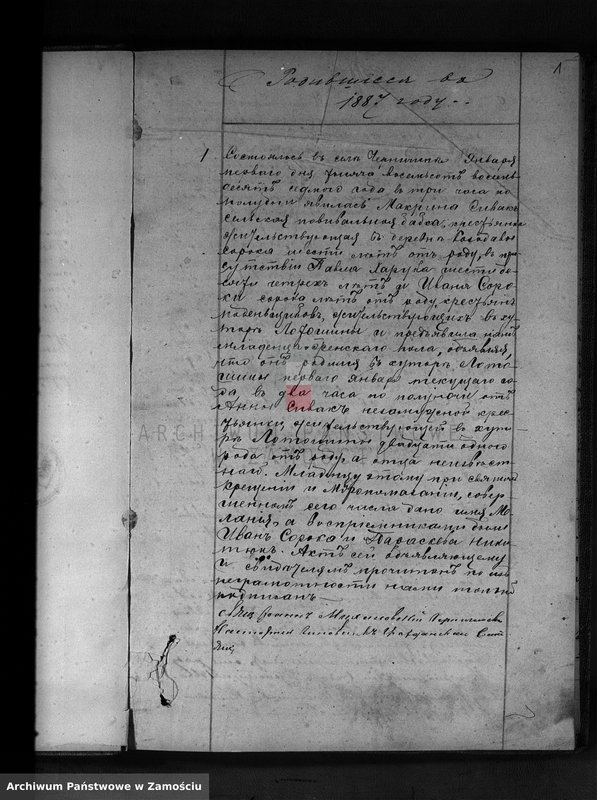 Родившіеся въ
1887 году.
1
1
Состоялось въ селѣ Января
перваго дня тысяча восемьсотъ восемь
десятъ седмого года въ три часа по
полудни явилась Макрина Сивакъ
сельская повивальная бабка, крестьянка
жительствующая въ деревнѣ
сорока шести лѣтъ отъ роду, въ при
сутствіи Павла шести де
сяти четырехъ лѣтъ и Ивана Соро
ки сорока лѣтъ отъ роду крестьянъ
поденьщиковъ, жительствующихъ въ ху
торѣ Лотошины и предъявила намъ
младенца женскаго пола, объявляя,
что онъ родился въ хуторѣ Лото
шины перваго Января текущаго го
да въ два часа по полуночи отъ
Анны Сивакъ незамужней крес
тьянки, жительствующей въ хуто
рѣ Лотошины двадцати одного
года отъ роду, а отца неизвѣст
наго. Младенцу этому при святомъ
крещеніи и Мѵропомазаніи, совер
шенномъ сего числа дано имя Ме
ланія, а воспріемниками были
Иванъ Сорока и Параскева Ники
тюкъ. Актъ сей объявляющему
и свидѣтелямъ прочитанъ по ихъ
неграмотности нами только
подписанъ
Свящ Іоаннъ
Настоятель Гражданскаго Сост
Archiwum Państwowe w Zamościu